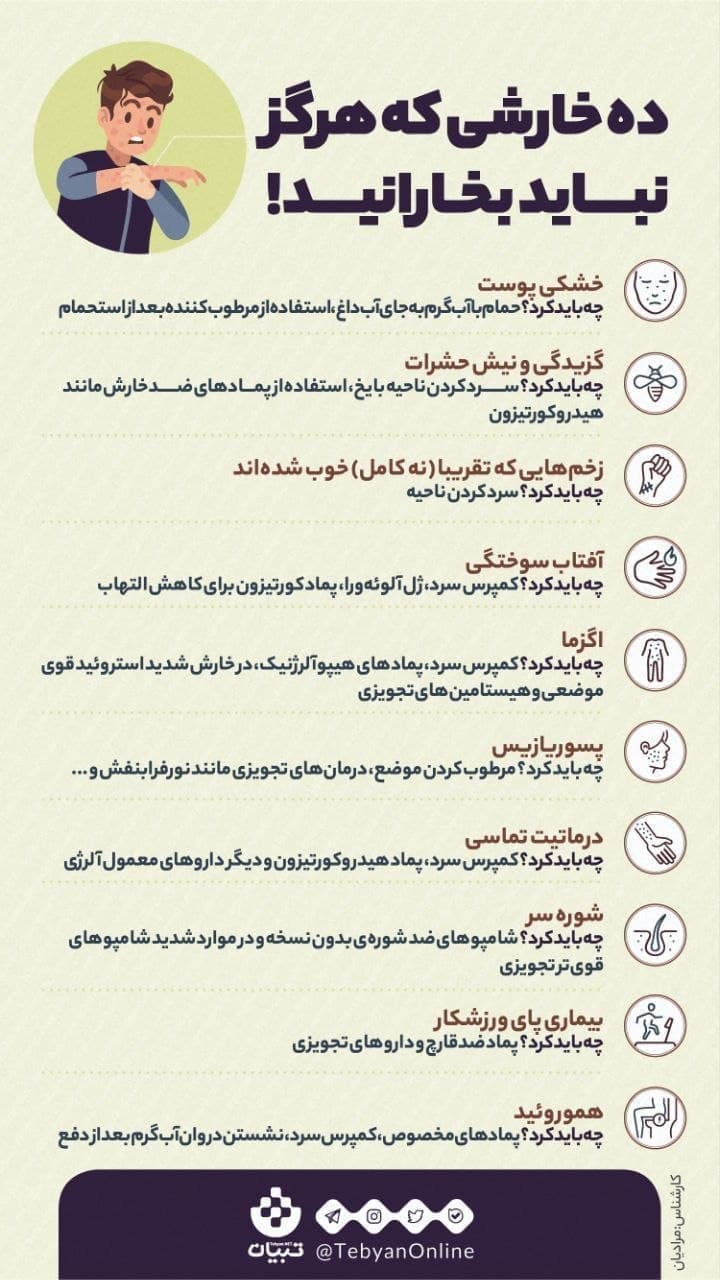 ده خارشی که هرگز
نباید بخارانید!
خشکی پوست
چه باید کرد؟ حمام با آب گرم به جای آب داغ، استفاده از مرطوب کننده بعد از استحمام
گزیدگی و نیش حشرات
چه باید کرد؟ سرد کردن ناحیه با یخ، استفاده از پمادهای ضد خارش مانند
هیدروکورتیزون
زخم‌هایی که تقریبا (نه کامل) خوب شده‌اند
چه باید کرد؟ سرد کردن ناحیه
آفتاب سوختگی
چه باید کرد؟ کمپرس سرد، ژل آلوئه ورا، پماد کورتیزون برای کاهش التهاب
اگزما
چه باید کرد؟ کمپرس سرد، پمادهای هیپوآلرژنیک، در خارش شدید استروئید قوی
موضعی و هیستامین های تجویزی
پسوریازیس
چه باید کرد؟ مرطوب کردن موضع، درمان های تجویزی مانند نور فرابنفش و ...
درماتیت تماسی
چه باید کرد؟ کمپرس سرد، پماد هیدروکورتیزون و دیگر داروهای معمول آلرژی
شوره سر
چه باید کرد؟ شامپوهای ضد شوره‌ی بدون نسخه و در موارد شدید شامپوهای
قوی تر تجویزی
بیماری پای ورزشکار
چه باید کرد؟ پماد ضد قارچ و داروهای تجویزی
هموروئید
چه باید کرد؟ پمادهای مخصوص، کمپرس سرد، نشستن در وان آب گرم بعد از دفع
کارشناس: مرادیان
Tebyan.NET
تبیان
@TebyanOnline